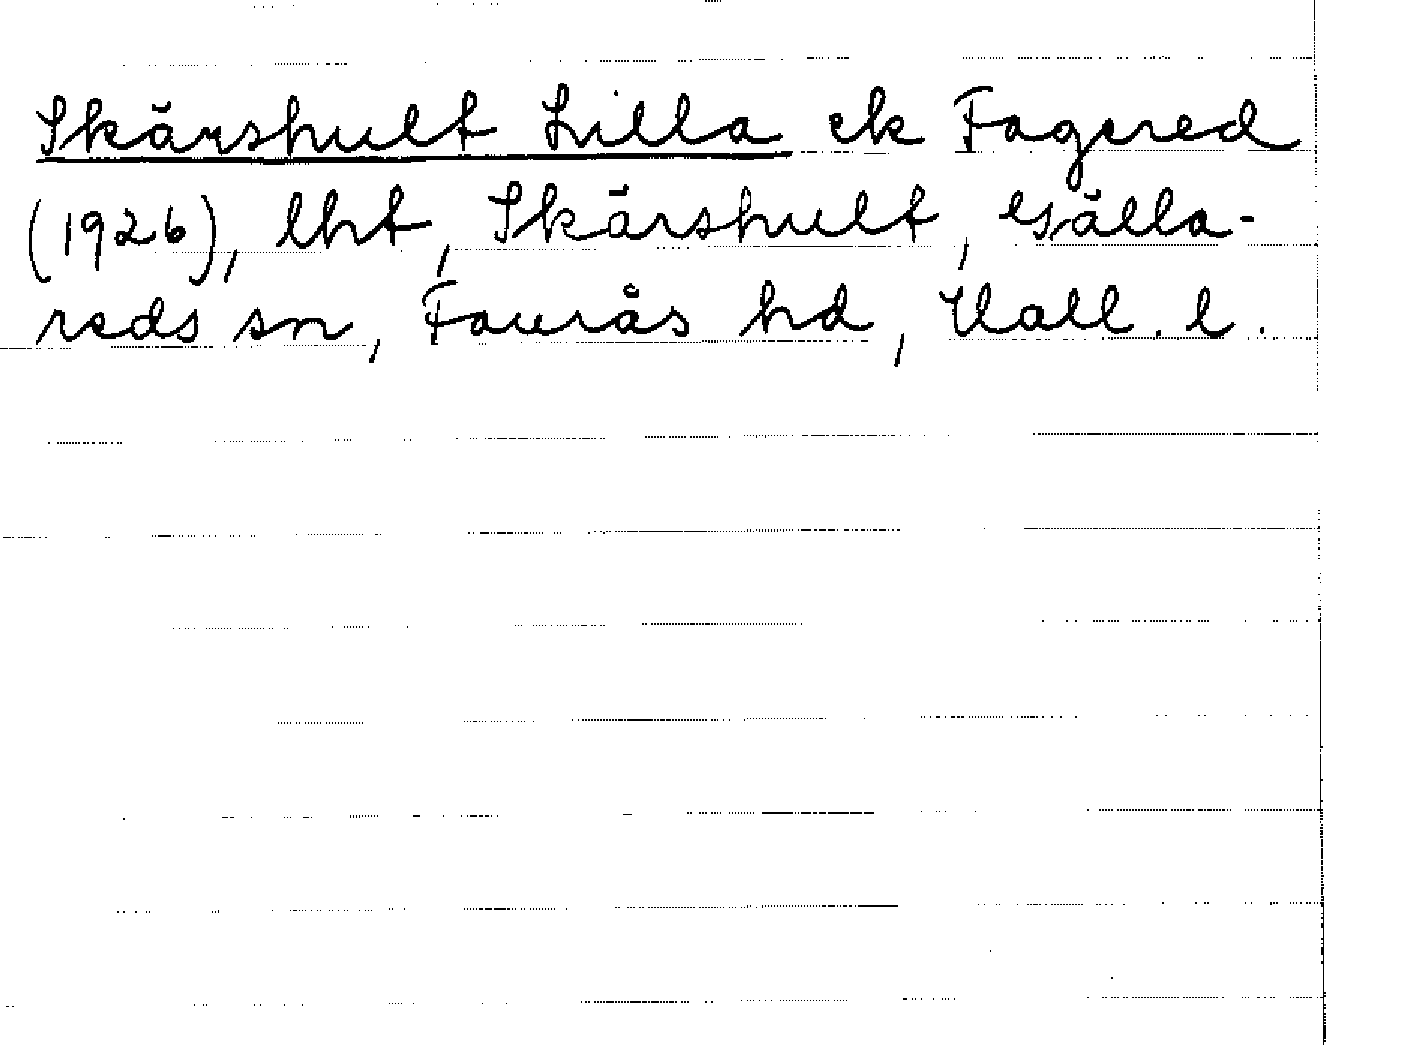 Skärshult Lilla ek Fagered
(1926), lht, Skärshult, Gälla-
reds sn, Faurås hd, Hall. l.